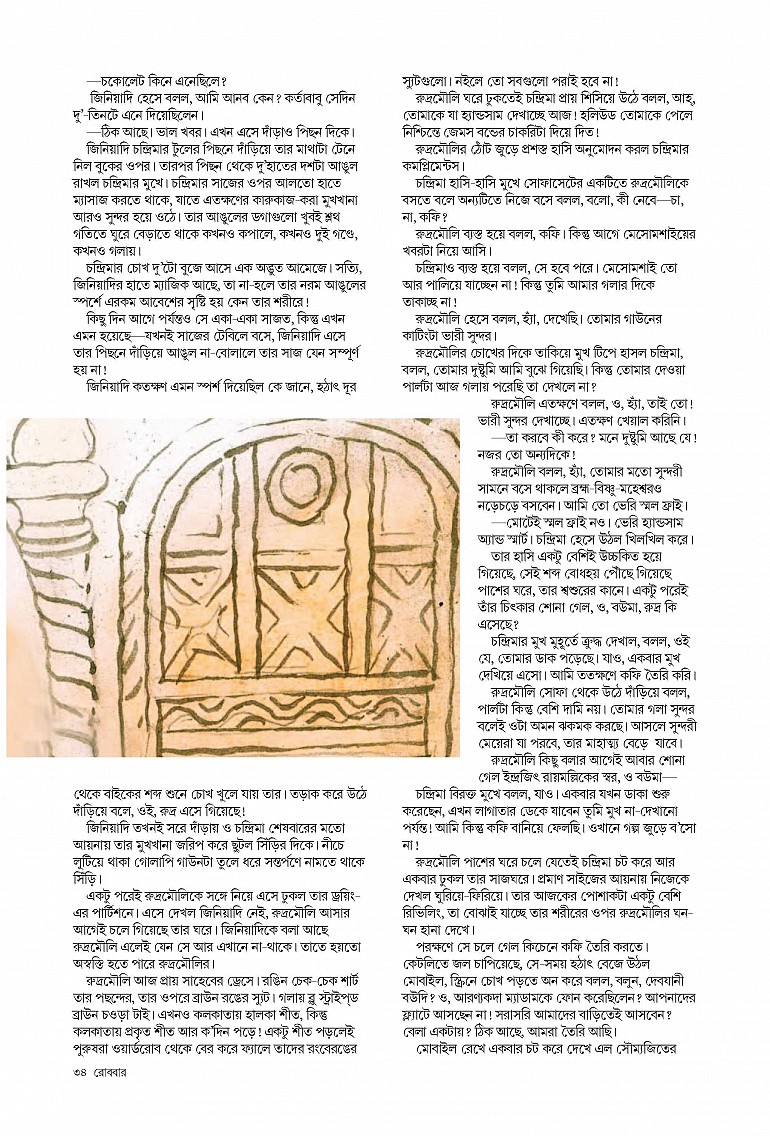 —চকোলেট কিনে এনেছিলে?
জিনিয়াদি হেসে বলল, আমি আনব কেন? কর্তাবাবু সেদিন
দু'-তিনটে এনে দিয়েছিলেন।
—ঠিক আছে। ভাল খবর। এখন এসে দাঁড়াও পিছন দিকে।
জিনিয়াদি চন্দ্রিমার টুলের পিছনে দাঁড়িয়ে তার মাথাটা টেনে
নিল বুকের ওপর। তারপর পিছন থেকে দু'হাতের দশটা আঙুল
রাখল চন্দ্রিমার মুখে। চন্দ্রিমার সাজের ওপর আলতো হাতে
ম্যাসাজ করতে থাকে, যাতে এতক্ষণের কারুকাজ-করা মুখখানা
আরও সুন্দর হয়ে ওঠে। তার আঙুলের ডগাগুলো খুবই শ্লথ
গতিতে ঘুরে বেড়াতে থাকে কখনও কপালে, কখনও দুই গণ্ডে,
কখনও গলায়।
চন্দ্রিমার চোখ দু'টো বুজে আসে এক অদ্ভুত আমেজে। সত্যি,
জিনিয়াদির হাতে ম্যাজিক আছে, তা না-হলে তার নরম আঙুলের
স্পর্শে এরকম আবেশের সৃষ্টি হয় কেন তার শরীরে!
কিছু দিন আগে পর্যন্তও সে একা-একা সাজত, কিন্তু এখন
এমন হয়েছে—যখনই সাজের টেবিলে বসে, জিনিয়াদি এসে
তার পিছনে দাঁড়িয়ে আঙুল না-বোলালে তার সাজ যেন সম্পূর্ণ
হয় না!
জিনিয়াদি কতক্ষণ এমন স্পর্শ দিয়েছিল কে জানে, হঠাৎ দূর
থেকে বাইকের শব্দ শুনে চোখ খুলে যায় তার। তড়াক করে উঠে
দাঁড়িয়ে বলে, ওই, রুদ্র এসে গিয়েছে!
জিনিয়াদি তখনই সরে দাঁড়ায় ও চন্দ্রিমা শেষবারের মতো
আয়নায় তার মুখখানা জরিপ করে ছুটল সিঁড়ির দিকে। নীচে
লুটিয়ে থাকা গোলাপি গাউনটা তুলে ধরে সন্তর্পণে নামতে থাকে
সিঁড়ি।
একটু পরেই রুদ্রমৌলিকে সঙ্গে নিয়ে এসে ঢুকল তার ড্রয়িং-
এর পার্টিশনে। এসে দেখল জিনিয়াদি নেই, রুদ্রমৌলি আসার
আগেই চলে গিয়েছে তার ঘরে। জিনিয়াদিকে বলা আছে
রুদ্রমৌলি এলেই যেন সে আর এখানে না-থাকে। তাতে হয়তো
অস্বস্তি হতে পারে রুদ্রমৌলির।
রুদ্রমৌলি আজ প্রায় সাহেবের ড্রেসে। রঙিন চেক-চেক শার্ট
তার পছন্দের, তার ওপরে ব্রাউন রঙের স্যুট। গলায় ব্লু স্ট্রাইপ্‌ড
ব্রাউন চওড়া টাই। এখনও কলকাতায় হালকা শীত, কিন্তু
কলকাতায় প্রকৃত শীত আর ক'দিন পড়ে! একটু শীত পড়লেই
পুরুষরা ওয়ার্ডরোব থেকে বের করে ফ্যালে তাদের রংবেরঙের
স্যুটগুলো। নইলে তো সবগুলো পরাই হবে না!
রুদ্রমৌলি ঘরে ঢুকতেই চন্দ্রিমা প্রায় শিসিয়ে উঠে বলল, আহ্‌,
তোমাকে যা হ্যান্ডসাম দেখাচ্ছে আজ! হলিউড তোমাকে পেলে
নিশ্চিন্তে জেমস বন্ডের চাকরিটা দিয়ে দিত!
রুদ্রমৌলির ঠোঁট জুড়ে প্রশস্ত হাসি অনুমোদন করল চন্দ্রিমার
কমপ্লিমেন্টস।
চন্দ্রিমা হাসি-হাসি মুখে সোফাসেটের একটিতে রুদ্রমৌলিকে
বসতে বলে অন্যটিতে নিজে বসে বলল, বলো, কী নেবে—চা,
না, কফি?
রুদ্রমৌলি ব্যস্ত হয়ে বলল, কফি। কিন্তু আগে মেসোমশাইয়ের
খবরটা নিয়ে আসি।
চন্দ্রিমাও ব্যস্ত হয়ে বলল, সে হবে পরে। মেসোমশাই তো
আর পালিয়ে যাচ্ছেন না! কিন্তু তুমি আমার গলার দিকে
তাকাচ্ছ না!
রুদ্রমৌলি হেসে বলল, হ্যাঁ, দেখেছি। তোমার গাউনের
কাটিংটা ভারী সুন্দর।
রুদ্রমৌলির চোখের দিকে তাকিয়ে মুখ টিপে হাসল চন্দ্রিমা,
বলল, তোমার দুষ্টুমি আমি বুঝে গিয়েছি। কিন্তু তোমার দেওয়া
পার্লটা আজ গলায় পরেছি তা দেখলে না?
রুদ্রমৌলি এতক্ষণে বলল, ও, হ্যাঁ, তাই তো!
ভারী সুন্দর দেখাচ্ছে। এতক্ষণ খেয়াল করিনি।
—তা করবে কী করে? মনে দুষ্টুমি আছে যে!
নজর তো অন্যদিকে!
রুদ্রমৌলি বলল, হ্যাঁ, তোমার মতো সুন্দরী
সামনে বসে থাকলে ব্রহ্ম-বিষ্ণু-মহেশ্বরও
নড়েচড়ে বসবেন। আমি তো ভেরি স্মল ফ্রাই।
—মোটেই স্মল ফ্রাই নও। ভেরি হ্যান্ডসাম
অ্যান্ড স্মার্ট। চন্দ্রিমা হেসে উঠল খিলখিল করে।
তার হাসি একটু বেশিই উচ্চকিত হয়ে
গিয়েছে, সেই শব্দ বোধহয় পৌঁছে গিয়েছে
পাশের ঘরে, তার শ্বশুরের কানে। একটু পরেই
তাঁর চিৎকার শোনা গেল, ও, বউমা, রুদ্র কি
এসেছে?
চন্দ্রিমার মুখ মুহূর্তে ক্রুদ্ধ দেখাল, বলল, ওই
যে, তোমার ডাক পড়েছে। যাও, একবার মুখ
দেখিয়ে এসো। আমি ততক্ষণে কফি তৈরি করি।
রুদ্রমৌলি সোফা থেকে উঠে দাঁড়িয়ে বলল,
পার্লটা কিন্তু বেশি দামি নয়। তোমার গলা সুন্দর
বলেই ওটা অমন ঝকমক করছে। আসলে সুন্দরী
মেয়েরা যা পরবে, তার মাহাত্ম্য বেড়ে যাবে।
রুদ্রমৌলি কিছু বলার আগেই আবার শোনা
গেল ইন্দ্রজিৎ রায়মল্লিকের স্বর, ও বউমা—
চন্দ্রিমা বিরক্ত মুখে বলল, যাও। একবার যখন ডাকা শুরু
করেছেন, এখন লাগাতার ডেকে যাবেন তুমি মুখ না-দেখানো
পর্যন্ত! আমি কিন্তু কফি বানিয়ে ফেলছি। ওখানে গল্প জুড়ে ব'সো
না!
রুদ্রমৌলি পাশের ঘরে চলে যেতেই চন্দ্রিমা চট করে আর
একবার ঢুকল তার সাজঘরে। প্রমাণ সাইজের আয়নায় নিজেকে
দেখল ঘুরিয়ে-ফিরিয়ে। তার আজকের পোশাকটা একটু বেশি
রিভিলিং, তা বোঝাই যাচ্ছে তার শরীরের ওপর রুদ্রমৌলির ঘন-
ঘন হানা দেখে।
পরক্ষণে সে চলে গেল কিচেনে কফি তৈরি করতে।
কেটলিতে জল চাপিয়েছে, সে-সময় হঠাৎ বেজে উঠল
মোবাইল, স্ক্রিনে চোখ পড়তে অন করে বলল, বলুন, দেবযানী
বউদি? ও, আরণ্যকদা ম্যাডামকে ফোন করেছিলেন? আপনাদের
ফ্ল্যাটে আসছেন না! সরাসরি আমাদের বাড়িতেই আসবেন?
বেলা একটায়? ঠিক আছে, আমরা তৈরি আছি।
মোবাইল রেখে একবার চট করে দেখে এল সৌম্যজিতের
৩৪ রোববার